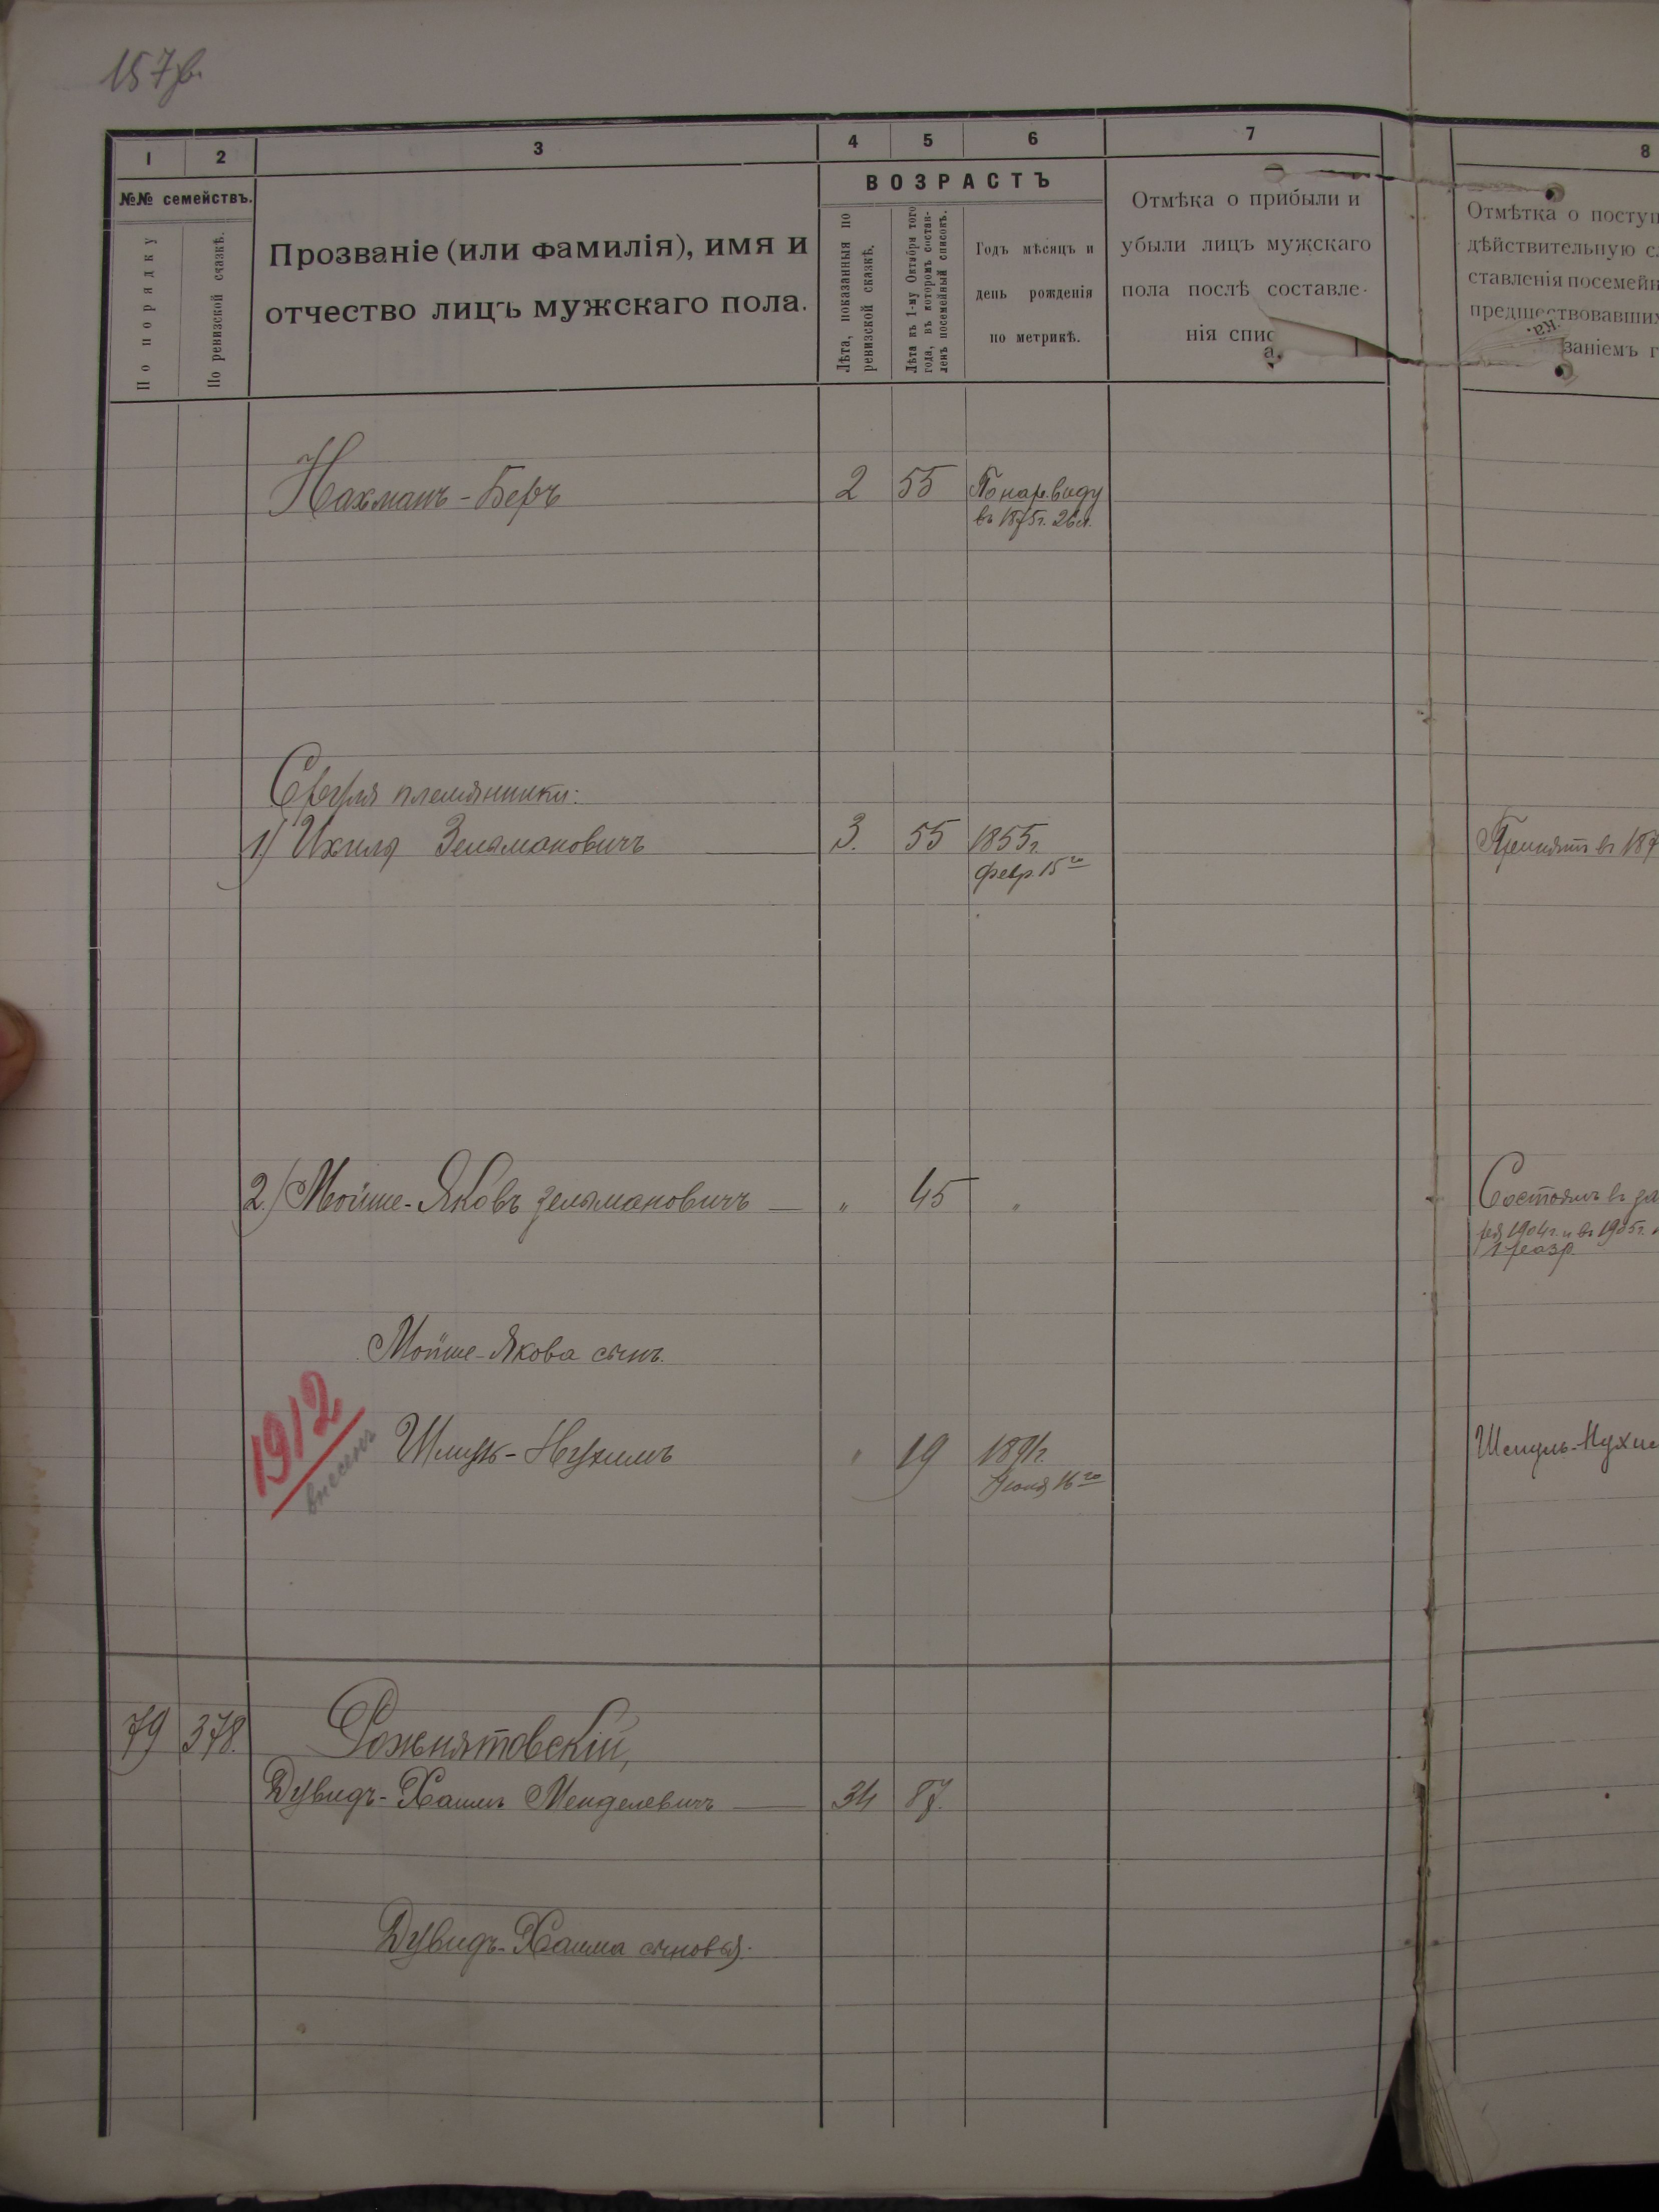 157 в.
1 2 3 4 5 6 7 8
№№ семействъ.
По порядку
По ревизской сказкѣ.
Прозваніе (или фамилія), имя и
отчество лицъ мужскаго пола.
ВОЗРАСТЪ
Лѣта, показанныя по
ревизской сказкѣ.
Лѣта къ 1-му Октября того
года, въ которомъ состав-
ленъ посемейный списокъ.
Годъ мѣсяцъ и
день рожденія
по метрикѣ.
Отмѣка о прибыли и
убыли лицъ мужскаго
пола послѣ составле-
нія спис
Отмѣтка о поступ
дѣйствительную сл
ставленія посемейн
предшествовавших
заніемъ г
ка.
Нахманъ-Беръ 2 55 По нар. виду
въ 1875г. 26 л.
племянники:
1) Ихиля Зельмановичъ 3. 55 1855г.
Февр. 15го
Принятъ въ 187
2.) Мойше-Яковъ Зельмановичъ — „ 45 „
Состоялъ въ за
1904г. и въ 1905г.
1 разр.
Мойше-Якова сынъ.
1912
внесенъ
Шмуль-Нухимъ „ 19 1891г.
16го
Шмуль-Нухи
79 378. Рожнятовскій,
Дувидъ-Хаимъ Менделевичъ — 34 87.
Дувидъ-Хаима сыновья: